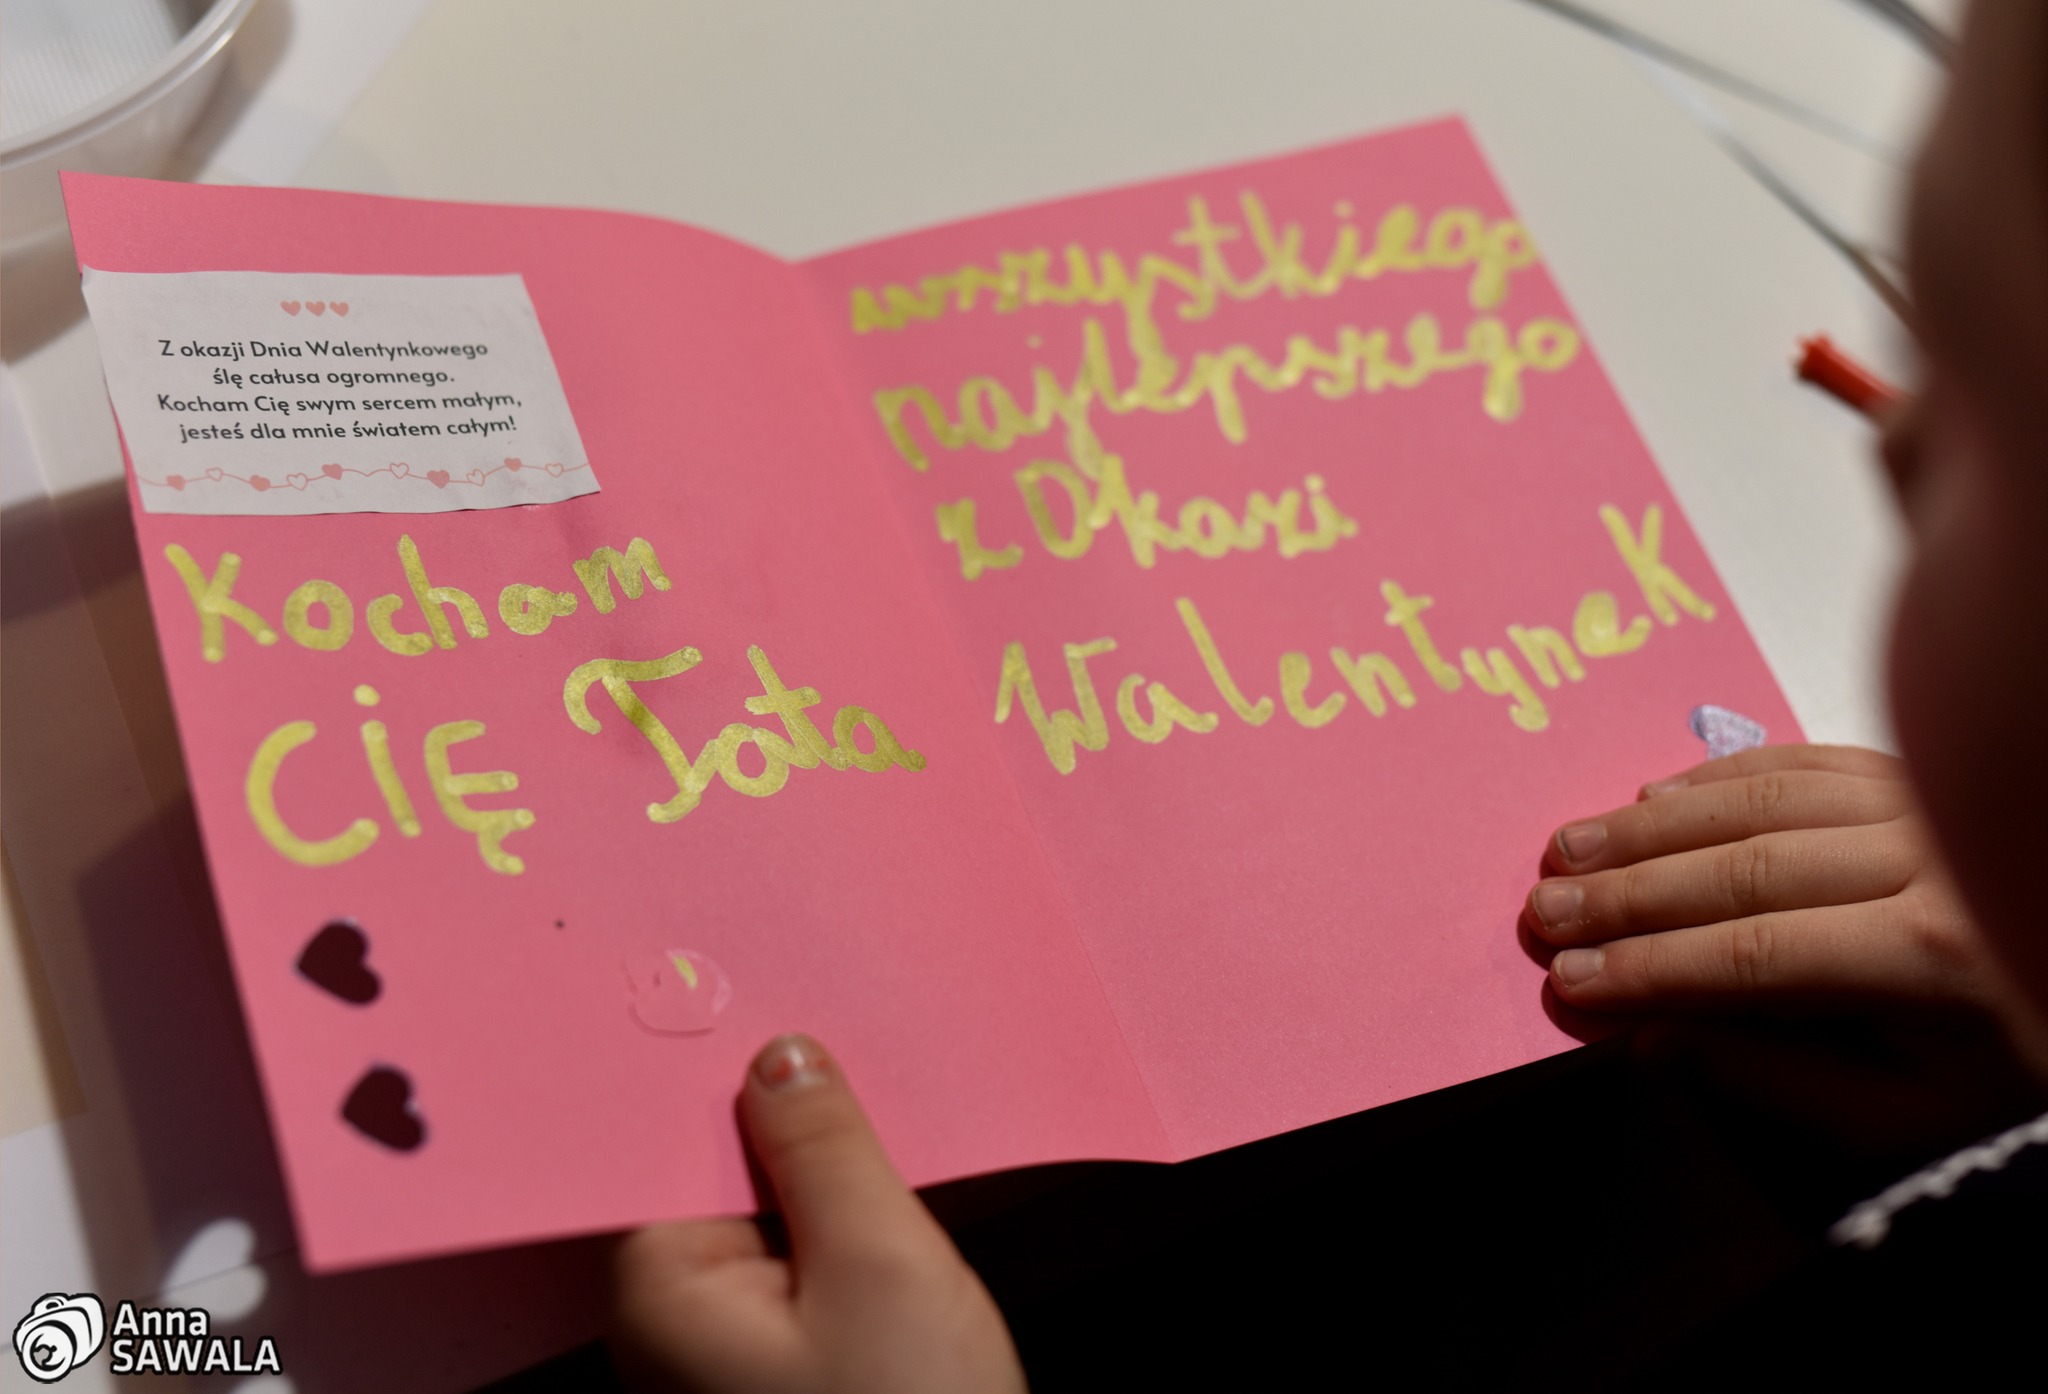 Z okazji Dnia Walentynkowego
ślę całusa ogromnego.
Kocham Cię swym sercem małym,
jesteś dla mnie światem całym!
Kocham
CIĘ Tata
wszystkiego
najlepszego
z Okazi
Walentynek
Anna
SAWALA